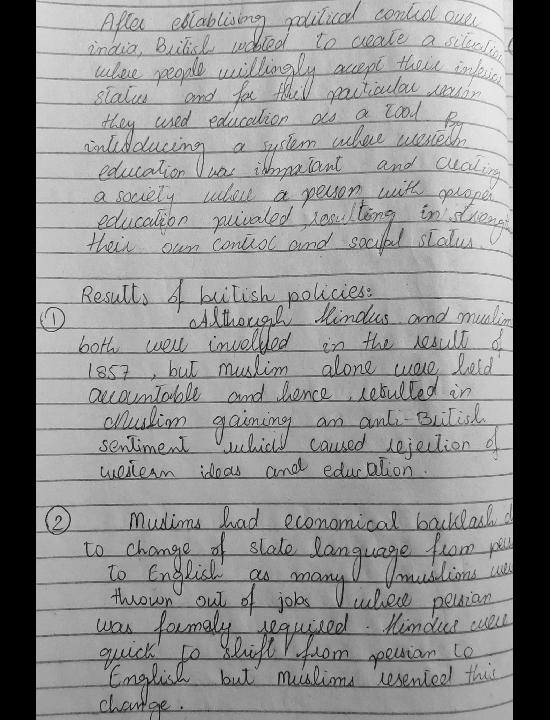 After establising political control over
india, British wanted to create a situation
where people willingly accept their inferior
status and for this particular reason
they used education as a tool. By
introducing a system where western
education was important and creating
a society where a person with proper
education privaled, resulting in strength
their own control and social status.
Results of british policies:
1 Although Hindus and muslim
both were involved in the result of
1857, but muslim alone were held
accountable and hence, resulted in
Muslim gaining an anti-British
sentiment which caused rejection of
western ideas and education.
2 Muslims had economical backlash d
to change of state language from pers
to English as many muslims were
thrown out of jobs where persian
was formely required. Hindus were
quick to shift from persian to
English but Muslims resented this
change.